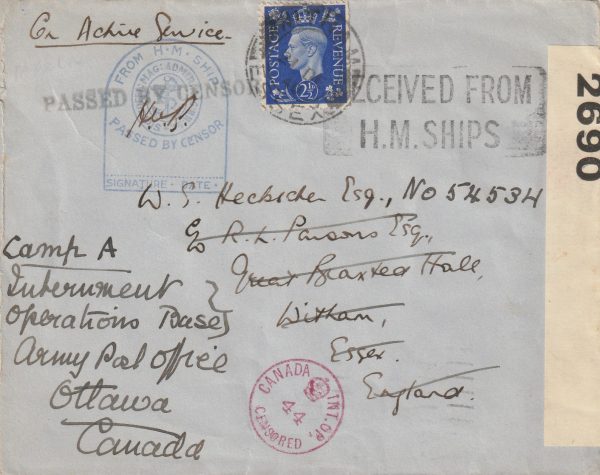 On Active Service.
POSTAGE REVENUE
2½D
FROM H.M. SHIP
PASSED BY CENSOR
SIGNATURE · DATE ·
PASSED BY CENSOR
RECEIVED FROM
H.M. SHIPS
2690
W. S. Heckscher Esq., No 54534
c/o R. L. Parsons Esq.,
Great Braxted Hall,
Witham,
Essex.
England.
Camp A
Internment
Operations Base
Army Post Office
Ottawa
Canada
CANADA INT. OP.
44
CENSORED